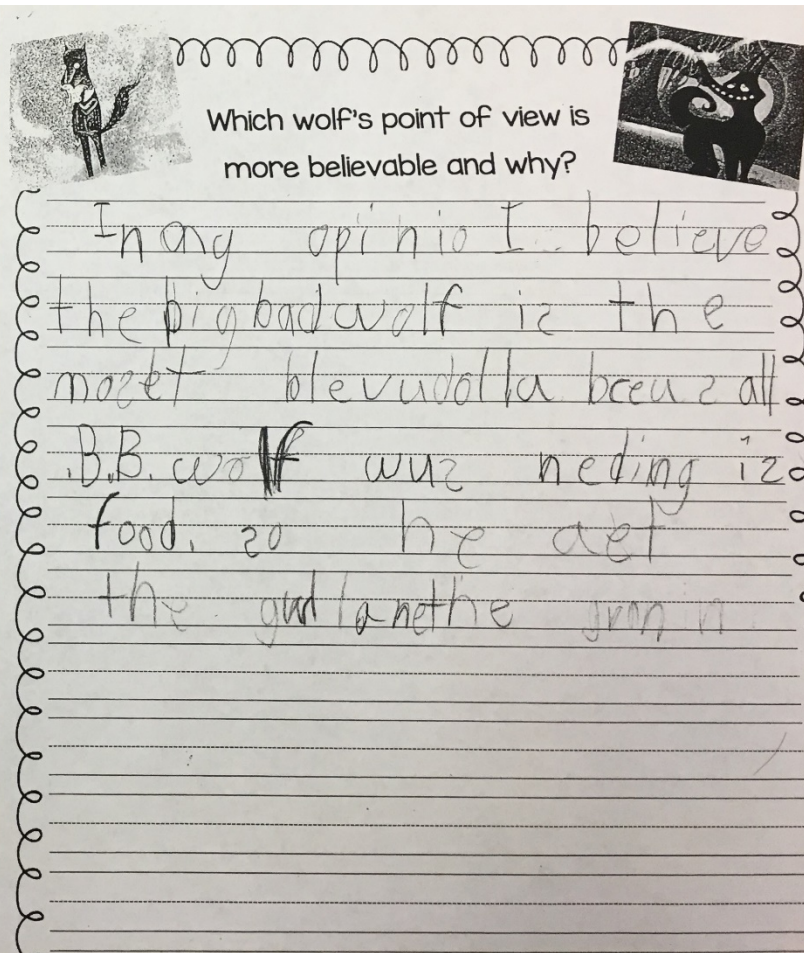 Which wolf's point of view is
more believable and why?
In my opinio I believe
the big bad wolf is the
most blevudolla bceus all
.B.B. wolf wus neding is
food. so he aet
the gurl anethe